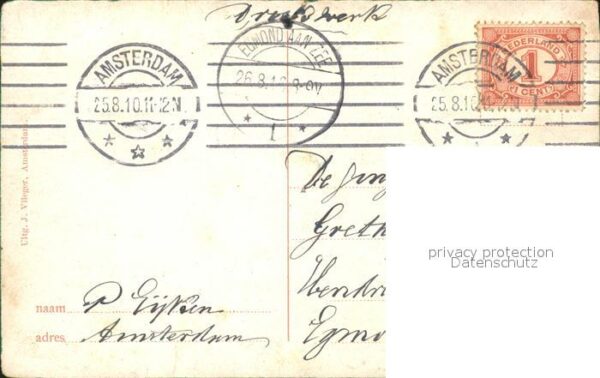 Drukwerk
AMSTERDAM
25.8.10.11-12.N
EGMOND AAN ZEE
26.8.1
1
AMSTERDAM
25.8.10.11-12.N
NEDERLAND
1
CENT
Uitg. J. Vlieger, Amsterdam
De Jong
Greth
Hendri
Egmo
privacy protection
Datenschutz
naam P Eijken
adres Amsterdam